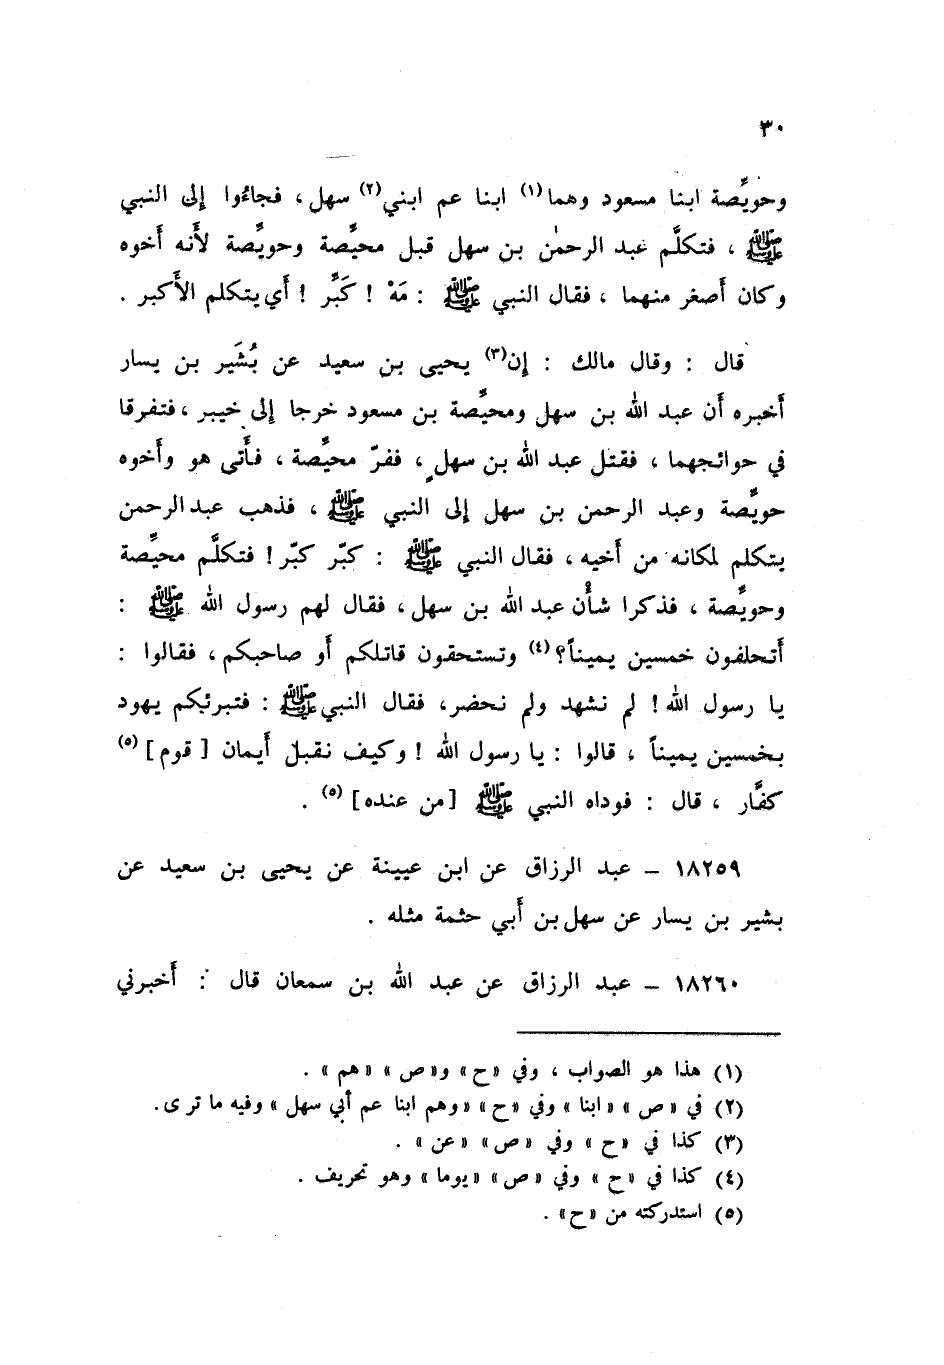 ٣٠
وحويِّصة ابنا مسعود وهما(١) ابنا عم ابني(٢) سهل ، فجاءُوا إلى النبي
ﷺ ، فتكلَّم عبد الرحمٰن بن سهل قبل محيِّصة وحويِّصة لأَنه أَخوه
وكان أَصغر منهما ، فقال النبي ﷺ : مَهْ ! كَبِّر ! أَي يتكلم الأَكبر .
قال : وقال مالك : إن(٣) يحيى بن سعيد عن بُشَير بن يسار
أَخبره أَن عبد الله بن سهل ومحيِّصة بن مسعود خرجا إلى خيبر ، فتفرقا
في حوائجهما ، فقتل عبد الله بن سهل ، ففرّ محيِّصة ، فأَتى هو وأَخوه
حويِّصة وعبد الرحمن بن سهل إلى النبي ﷺ ، فذهب عبد الرحمن
يتكلم لمكانه من أَخيه ، فقال النبي ﷺ : كبّر كبّر ! فتكلَّم محيِّصة
وحويِّصة ، فذكرا شأْن عبد الله بن سهل ، فقال لهم رسول الله ﷺ :
أَتحلفون خمسين يميناً؟(٤) وتستحقون قاتلكم أَو صاحبكم ، فقالوا :
يا رسول الله ! لم نشهد ولم نحضر ، فقال النبي ﷺ : فتبرئكم يهود
بخمسين يميناً ، قالوا : يا رسول الله ! وكيف نقبل أَيمان [ قوم ](٥)
كفَّار ، قال : فوداه النبي ﷺ [من عنده](٥) .
١٨٢٥٩ – عبد الرزاق عن ابن عيينة عن يحيى بن سعيد عن
بشير بن يسار عن سهل بن أَبي حثمة مثله .
١٨٢٦٠ – عبد الرزاق عن عبد الله بن سمعان قال : أَخبرني
(١) هذا هو الصواب ، وفي «ح» و«ص» «هم» .
(٢) في «ص» «ابنا» وفي «ح» «وهم ابنا عم أبي سهل» وفيه ما ترى.
(٣) كذا في «ح» وفي «ص» «عن» .
(٤) كذا في «ح» وفي «ص» «يوما» وهو تحريف .
(٥) استدركته من «ح» .